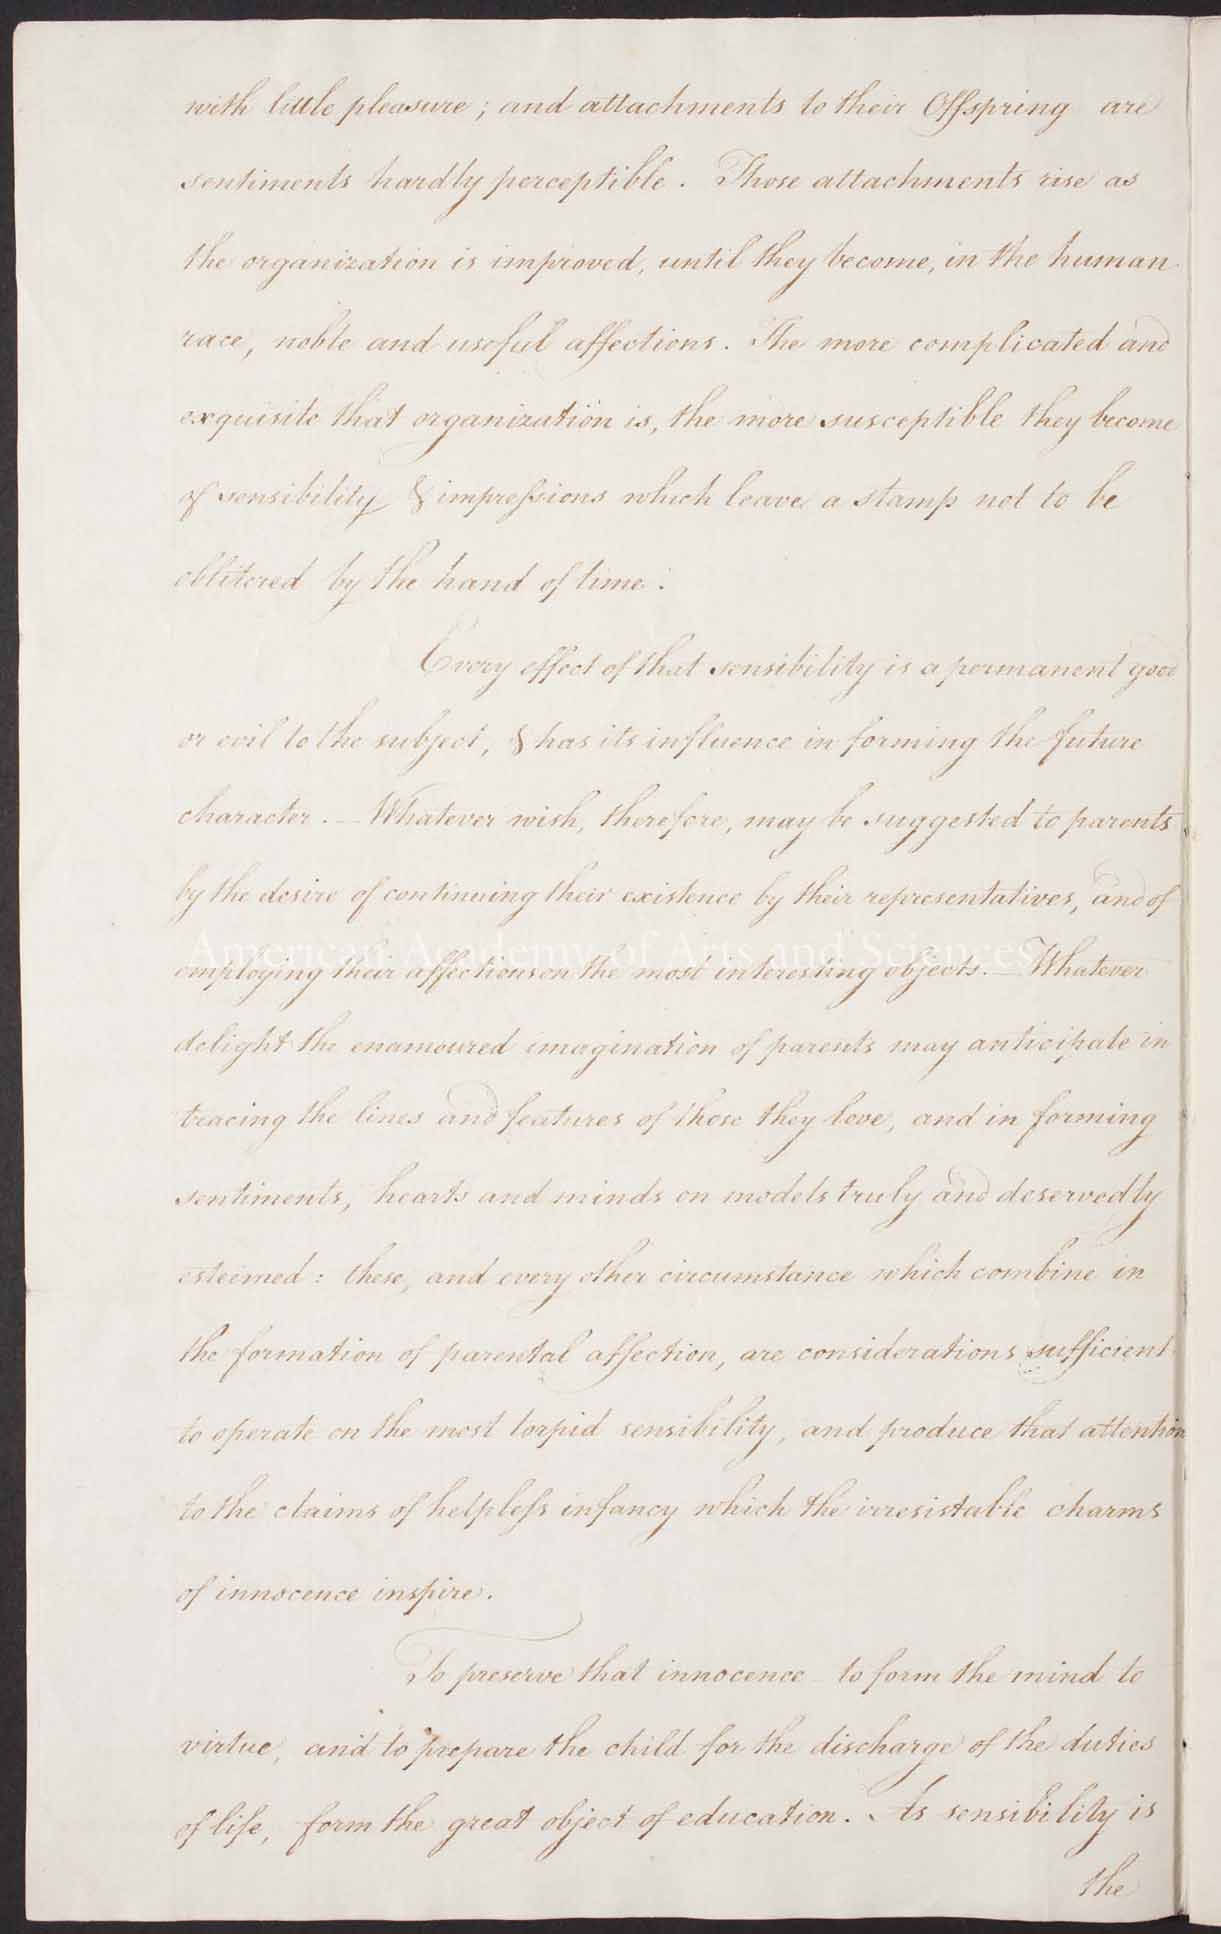 with little pleasure; and attachments to their Offspring are
sentiments hardly perceptible. Those attachments rise as
the organization is improved, until they become, in the human
race, noble and useful affections. The more complicated and
exquisite that organization is, the more susceptible they become
of sensibility & impressions which leave a stamp not to be
oblitered by the hand of time.
Every effect of that sensibility is a permanent good
or evil to the subject, & has its influence in forming the future
character. — Whatever wish, therefore, may be suggested to parents
by the desire of continuing their existence by their representatives, and of
American Academy of Arts and Sciences
employing their affections on the most interesting objects. — Whatever
delight the enamoured imagination of parents may anticipate in
tracing the lines and features of those they love, and in forming
sentiments, hearts and minds on models truly and deservedly
esteemed: these, and every other circumstance which combine in
the formation of parental affection, are considerations sufficient
to operate on the most torpid sensibility, and produce that attention
to the claims of helpless infancy which the irresistable charms
of innocence inspire.
To preserve that innocence to form the mind to
virtue, and to prepare the child for the discharge of the duties
of life, form the great object of education. As sensibility is
the